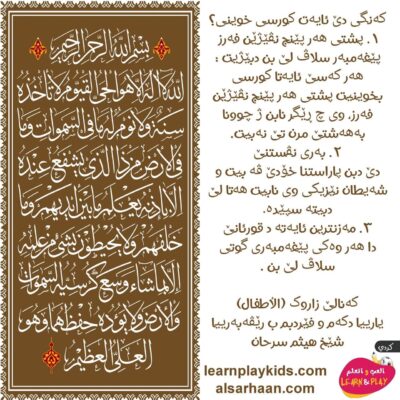 بسم الله الرحمن الرحيم
الله لا اله الا هو الحي القيوم لا تأخذه
سنة ولا نوم له ما في السموات وما
في الأرض من ذا الذي يشفع عنده
الا باذنه يعلم ما بين ايديهم وما
خلفهم ولا يحيطون بشئ من علمه
الا بما شاء وسع كرسيه السموات
والأرض ولا يؤده حفظهما وهو
العلي العظيم
كەنگی دێ ئایەت كورسی خوینی؟
١. پشتی هەر پێنج نڤێژێن فەرز
پێغەمبەر سلاڤ لێ بن دبێژیت :
هەر كەسێ ئایەتا كورسی
بخوینیت پشتی هەر پێنج نڤێژێن
فەرز، وی چ ڕێگر نابن ژ چوونا
بەهەشتێ مرن تێ نەبیت.
٢. بەری نڤستنێ
دێ بن پاراستنا خۆدێ ڤە بیت و
شەیطان نێزیكی وی نابیت هەتا لێ
دبیتە سپێدە.
٣. مەزنترین ئایەتە د قورئانێ
دا هەر وەكی پێغەمبەری گوتی
سلاڤ لێ بن .
كەنالێ زاروك (الأطفال)
یارییا دكەم و فێردبم ب ڕێڤەبەرییا
شێخ هیثم سرحان
learnplaykids.com
alsarhaan.com
كردي
العب و اتعلم
LEARN & PLAY